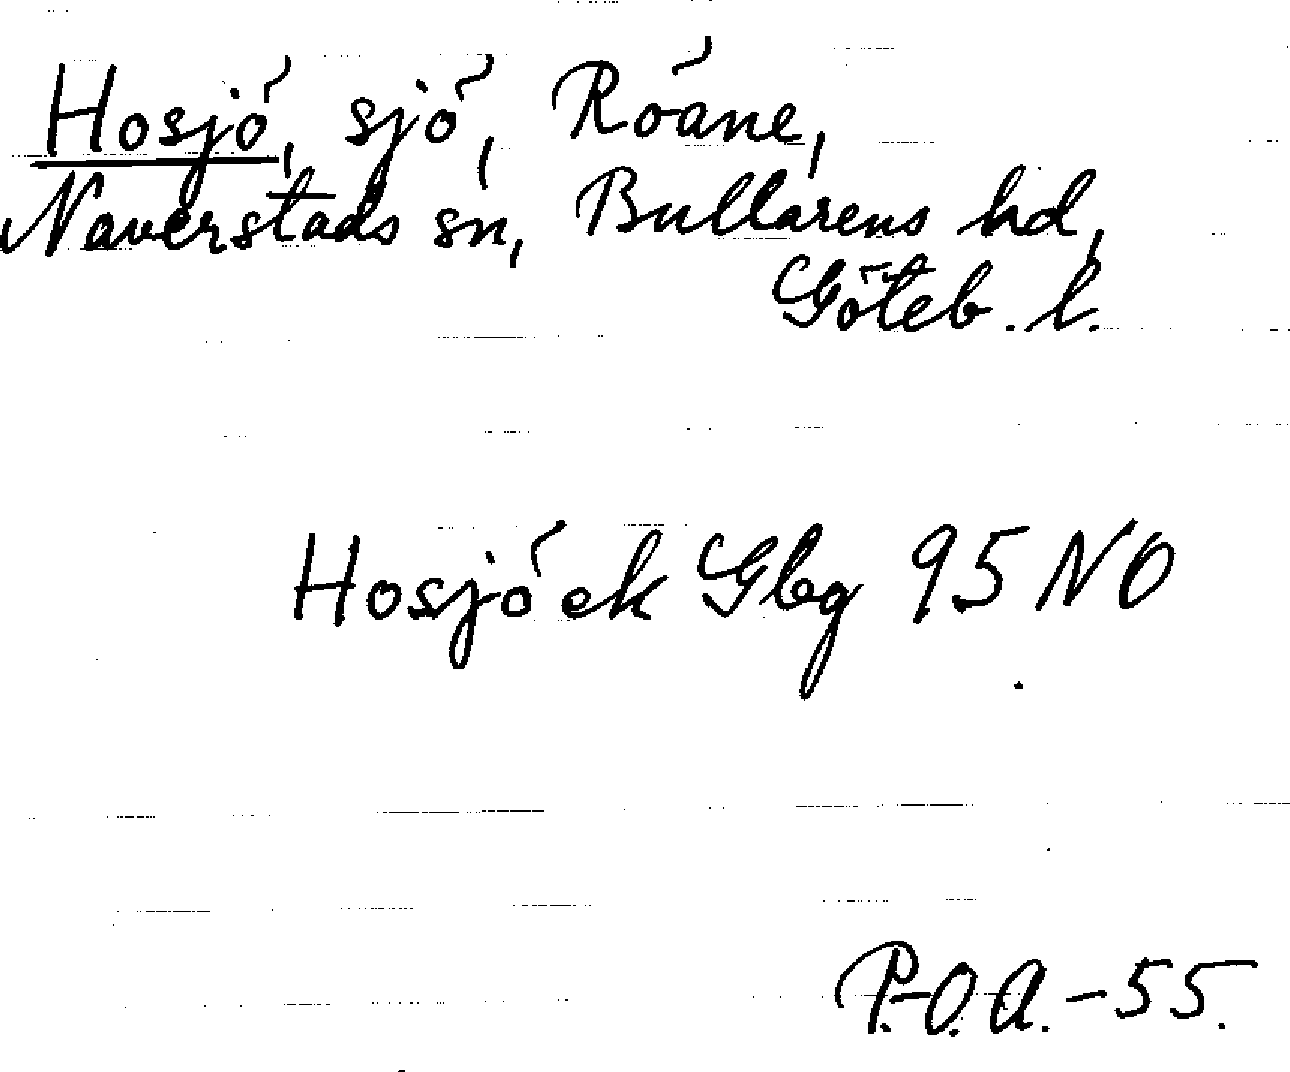 Hosjö, sjö, Röane,
Naverstads sn, Bullarens hd,
Göteb. l.
Hosjö ek Gbg 95 NO
P.-O.A.-55.